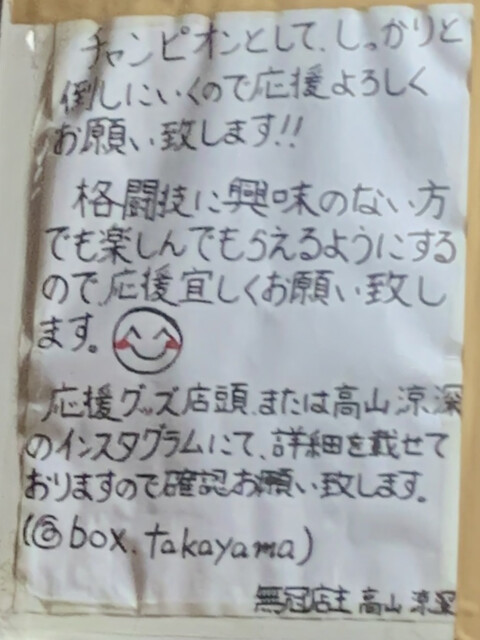 チャンピオンとして、しっかりと
倒しにいくので応援よろしく
お願い致します!!
格闘技に興味のない方
でも楽しんでもらえるようにする
ので、応援宜しくお願い致し
ます。
応援グッズ店頭、または高山涼深
のインスタグラムにて、詳細を載せて
おりますので確認お願い致します。
(@box.takayama)
無冠店主 高山涼深